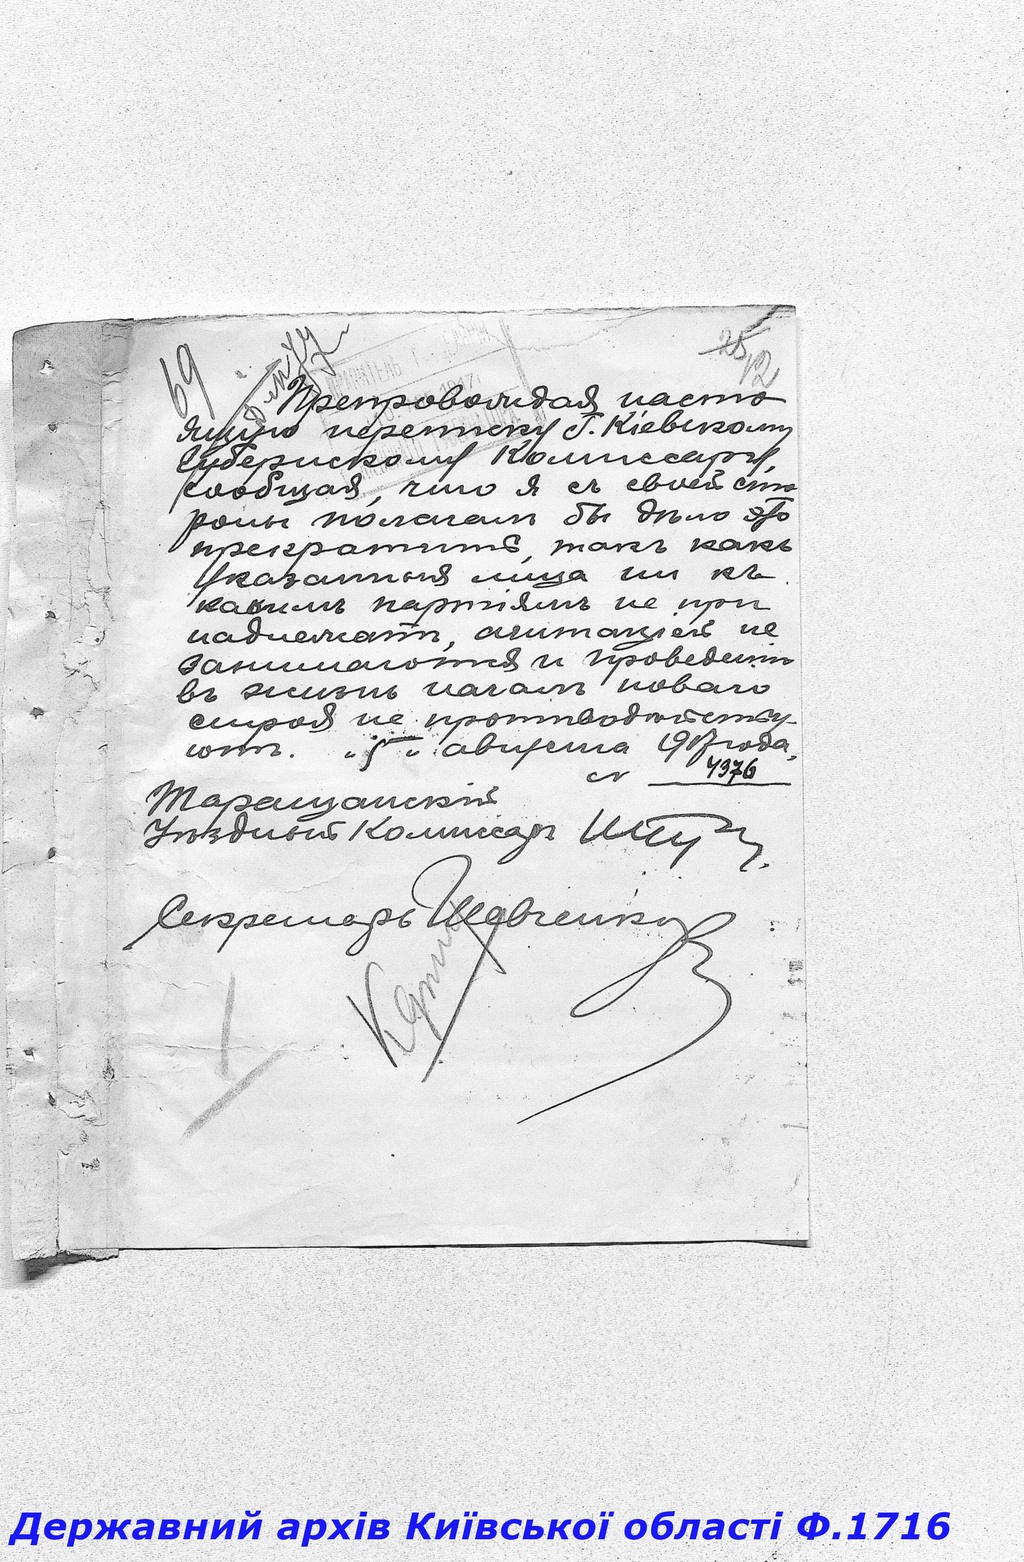 69
25
12
Препровождая насто
ящую переписку Г. Кіевскому
Губернскому Комиссару,
сообщая, что я съ своей сто
роны полагалъ бы дѣло это
прекратить, такъ какъ
указанныя лица ни къ
какимъ партіямъ не при
надлежатъ, агитаціей не
занимаются и проведенію
въ жизнь началъ новаго
строя не противодѣйству
ютъ. "5" августа 1917 года.
№ 4376
Таращанскій
Уѣздный Комиссаръ
Секретарь Шевченко
Державний архів Київської області Ф.1716